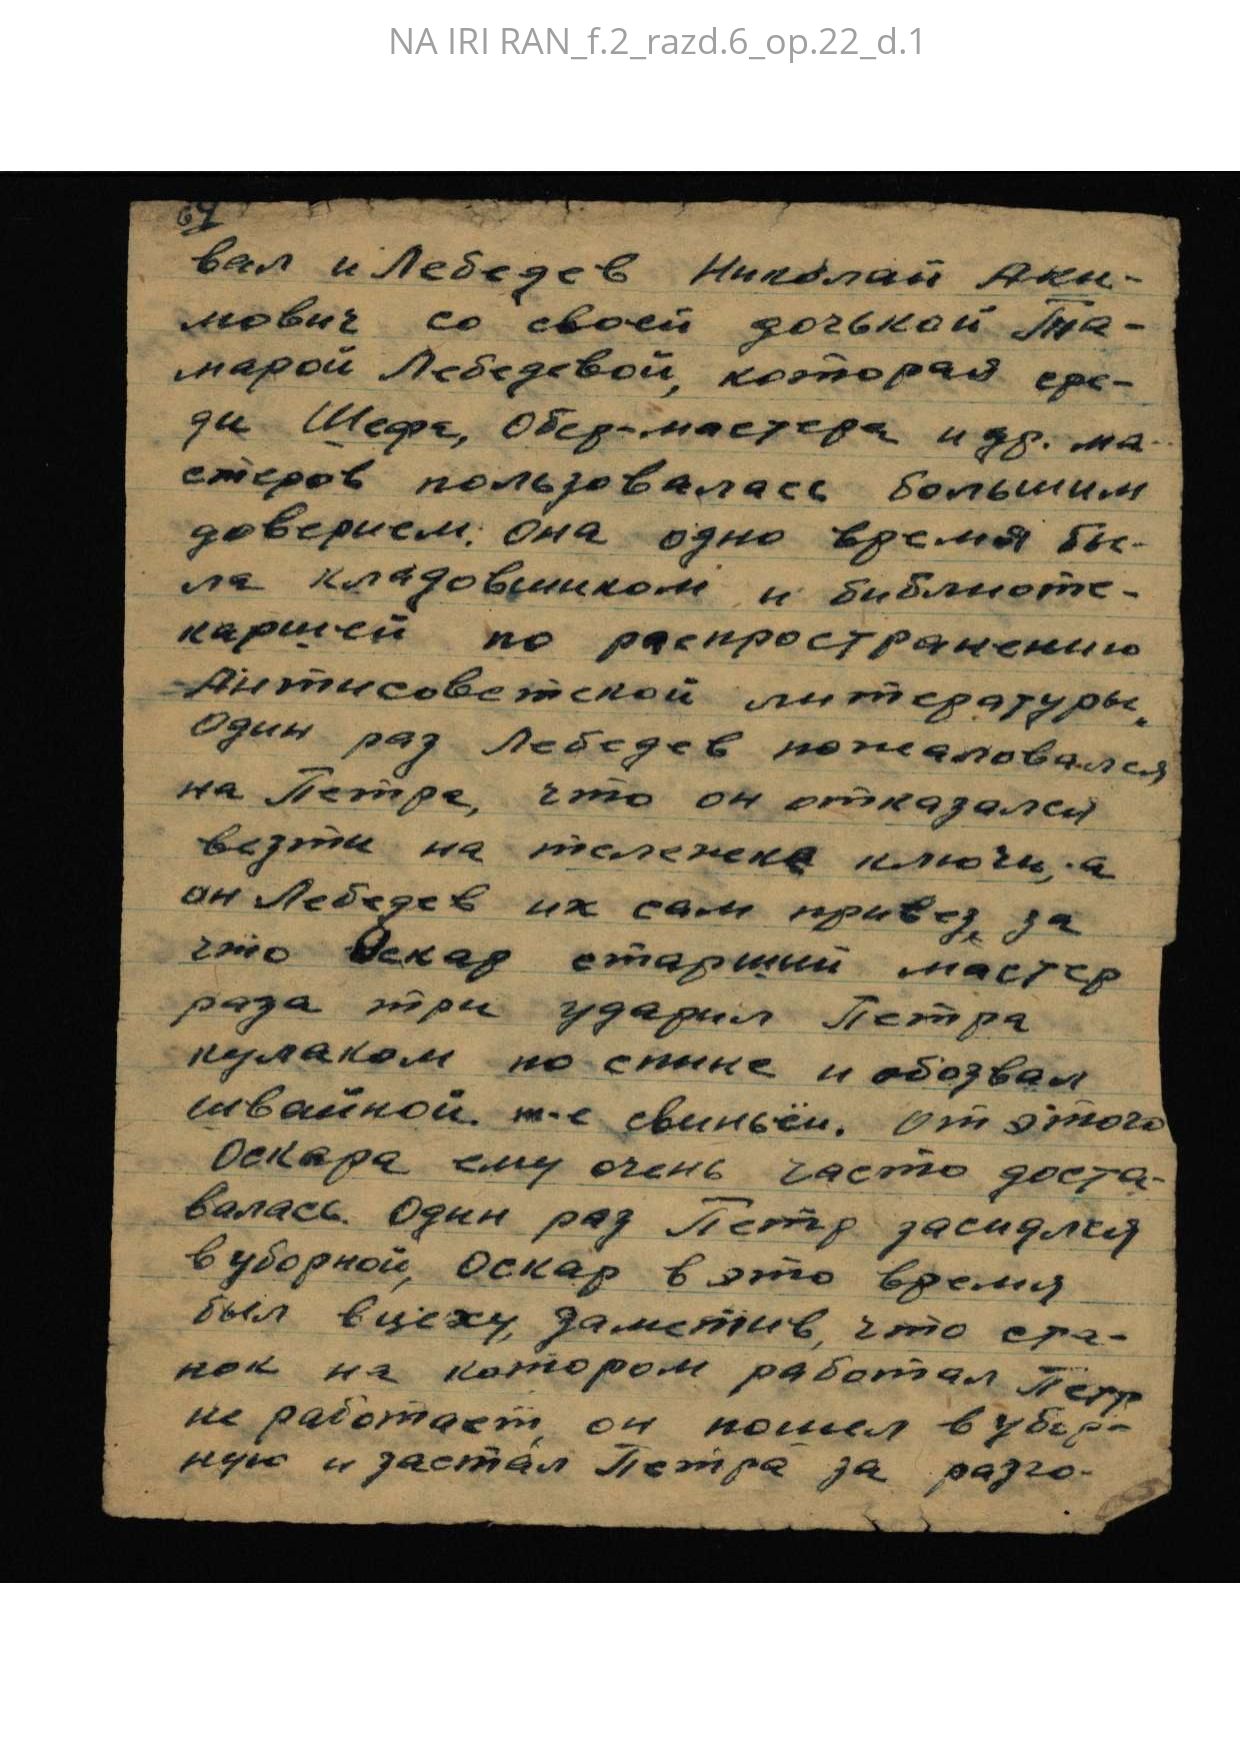 NA IRI RAN_f.2_razd.6_op.22_d.1
67
вал и Лебедев Николай Аки-
мович со своей дочькой Та-
марой Лебедевой, которая сре-
ди Шефа, Обер-мастера и др. ма-
стеров пользовалась большим
доверием. Она одно время бы-
ла кладовшиком и библиоте-
каршей по распространению
Антисоветской литературы.
Один раз Лебедев пожаловался
на Петра, что он отказался
везти на тележке ключи, а
он Лебедев их сам привез, за
что Оскар старший мастер
раза три ударил Петра
кулаком по спине и обозвал
швайной. т-е свиньёи. От этого
Оскара ему очень часто доста-
валась. Один раз Петр засидлся
в уборной, Оскар в это время
был в цеху, заметив, что ста-
нок на котором работал Петр
не работает, он пошел в убор-
ную и застал Петра за разго-